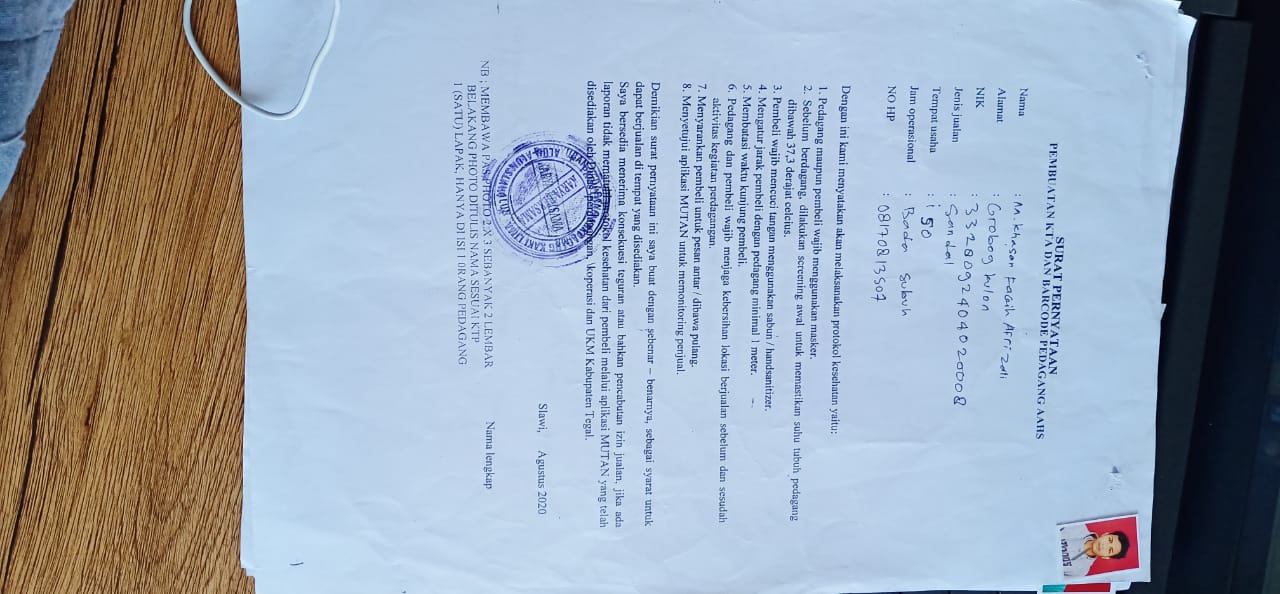 SURAT PERNYATAAN
PEMBUATAN KTA DAN BARCODE PEDAGANG AAHS
Nama : M. Khasan Faqih Afrizal
Alamat : Grobog kulon
NIK : 3328092404020008
Jenis jualan : Sandal
Tempat usaha : i 50
Jam operasional : Bada subuh
NO HP : 08180813507
Dengan ini kami menyatakan akan melaksanakan protokol kesehatan yaitu:
1. Pedagang maupun pembeli wajib menggunakan masker.
2. Sebelum berdagang, dilakukan screening awal untuk memastikan suhu tubuh pedagang
dibawah 37,3 derajat celcius.
3. Pembeli wajib mencuci tangan menggunakan sabun / handsanitizer.
4. Mengatur jarak pembeli dengan pedagang minimal 1 meter.
5. Membatasi waktu kunjung pembeli.
6. Pedagang dan pembeli wajib menjaga kebersihan lokasi berjualan sebelum dan sesudah
aktivitas kegiatan perdagangan.
7. Menyarankan pembeli untuk pesan antar / dibawa pulang.
8. Menyetujui aplikasi MUTAN untuk memonitoring penjual.
Demikian surat pernyataan ini saya buat dengan sebenar – benarnya, sebagai syarat untuk
dapat berjualan di tempat yang disediakan.
Saya bersedia menerima konsekuesi teguran atau bahkan pencabutan izin jualan, jika ada
laporan tidak mentaati protokol kesehatan dari pembeli melalui aplikasi MUTAN yang telah
disediakan oleh Dinas Perdagangan, koperasi dan UKM Kabupaten Tegal.
Slawi, Agustus 2020
Nama lengkap
NB ; MEMBAWA PAS PHOTO 2 X 3 SEBANYAK 2 LEMBAR
BELAKANG PHOTO DITULIS NAMA SESUAI KTP
1 (SATU) LAPAK, HANYA DI ISI 1 ORANG PEDAGANG